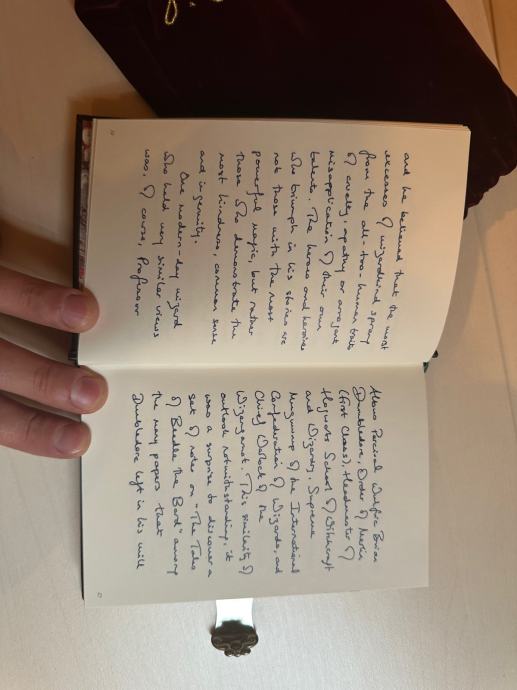 and he believed that the most
excesses of wizardkind sprang
from the all-too-human traits
of cruelty, apathy or arrogant
misapplication of their own
talents. The heroes and heroines
who triumph in his stories are
not those with the most
powerful magic, but rather
those who demonstrate the
most kindness, common sense
and ingenuity.
One modern-day wizard
who held very similar views
was, of course, Professor
Albus Percival Wulfric Brian
Dumbledore, Order of Merlin
(First Class), Headmaster of
Hogwarts School of Witchcraft
and Wizardry, Supreme
Mugwump of the International
Confederation of Wizards, and
Chief Warlock of the
Wizengamot. This similarity of
outlook notwithstanding, it
was a surprise to discover a
set of notes on "The Tales
of Beedle the Bard" among
the many papers that
Dumbledore left in his will